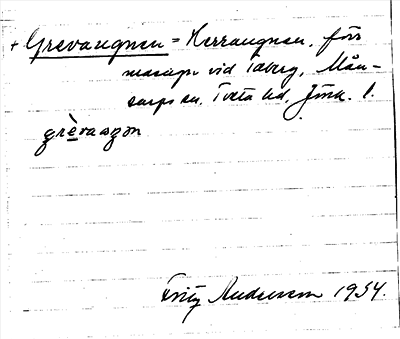 + Grevaugnen = Herraugnen, förr
masugn vid Taberg, Mån-
sarps sn. Tveta hd, Jönk. l.
grèvaωgən
Fritz Andersson 1934.